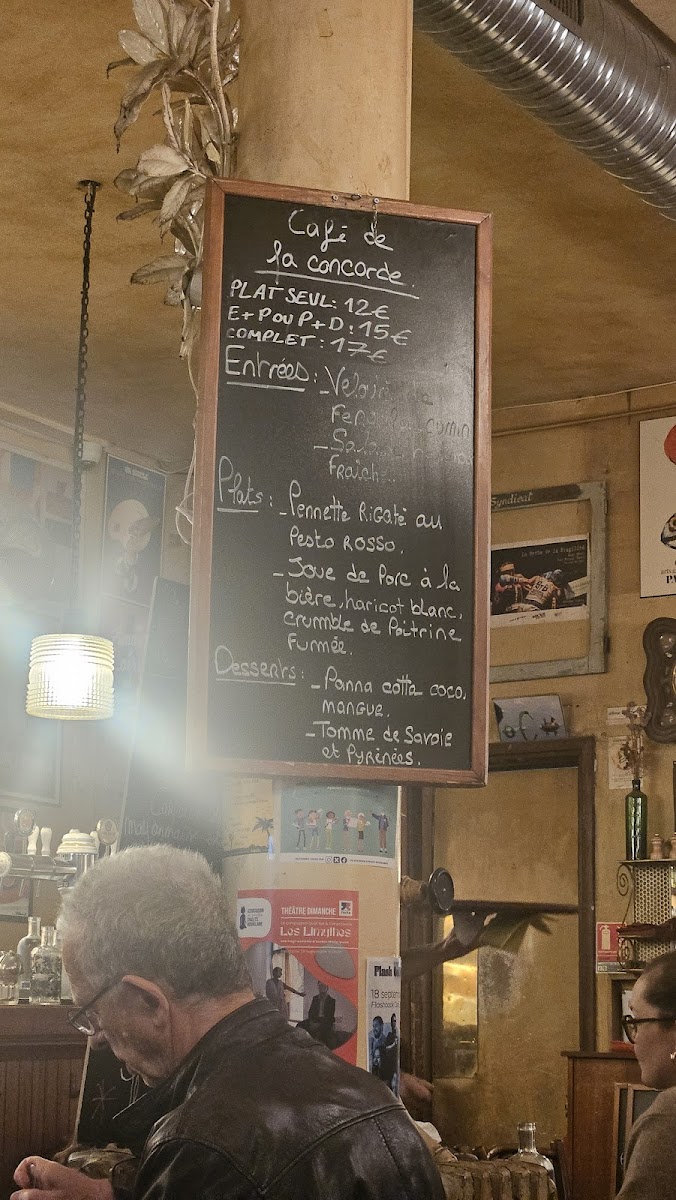 Café de
la concorde.
PLAT SEUL: 12€
E+P ou P+D: 15€
COMPLET: 17€
Entrées: - Velouté de
Fenouil, cumin
FRAÎCHE.
Plats: - Pennette Rigate au
Pesto ROSSO.
- Joue de Porc à la
bière, haricot blanc,
crumble de Poitrine
Fumée.
Desserts: - Panna cotta coco,
mangue.
- Tomme de Savoie
et Pyrénées.
Syndicat
THÉÂTRE DIMANCHE
Les Limythos
Flash
18 septem